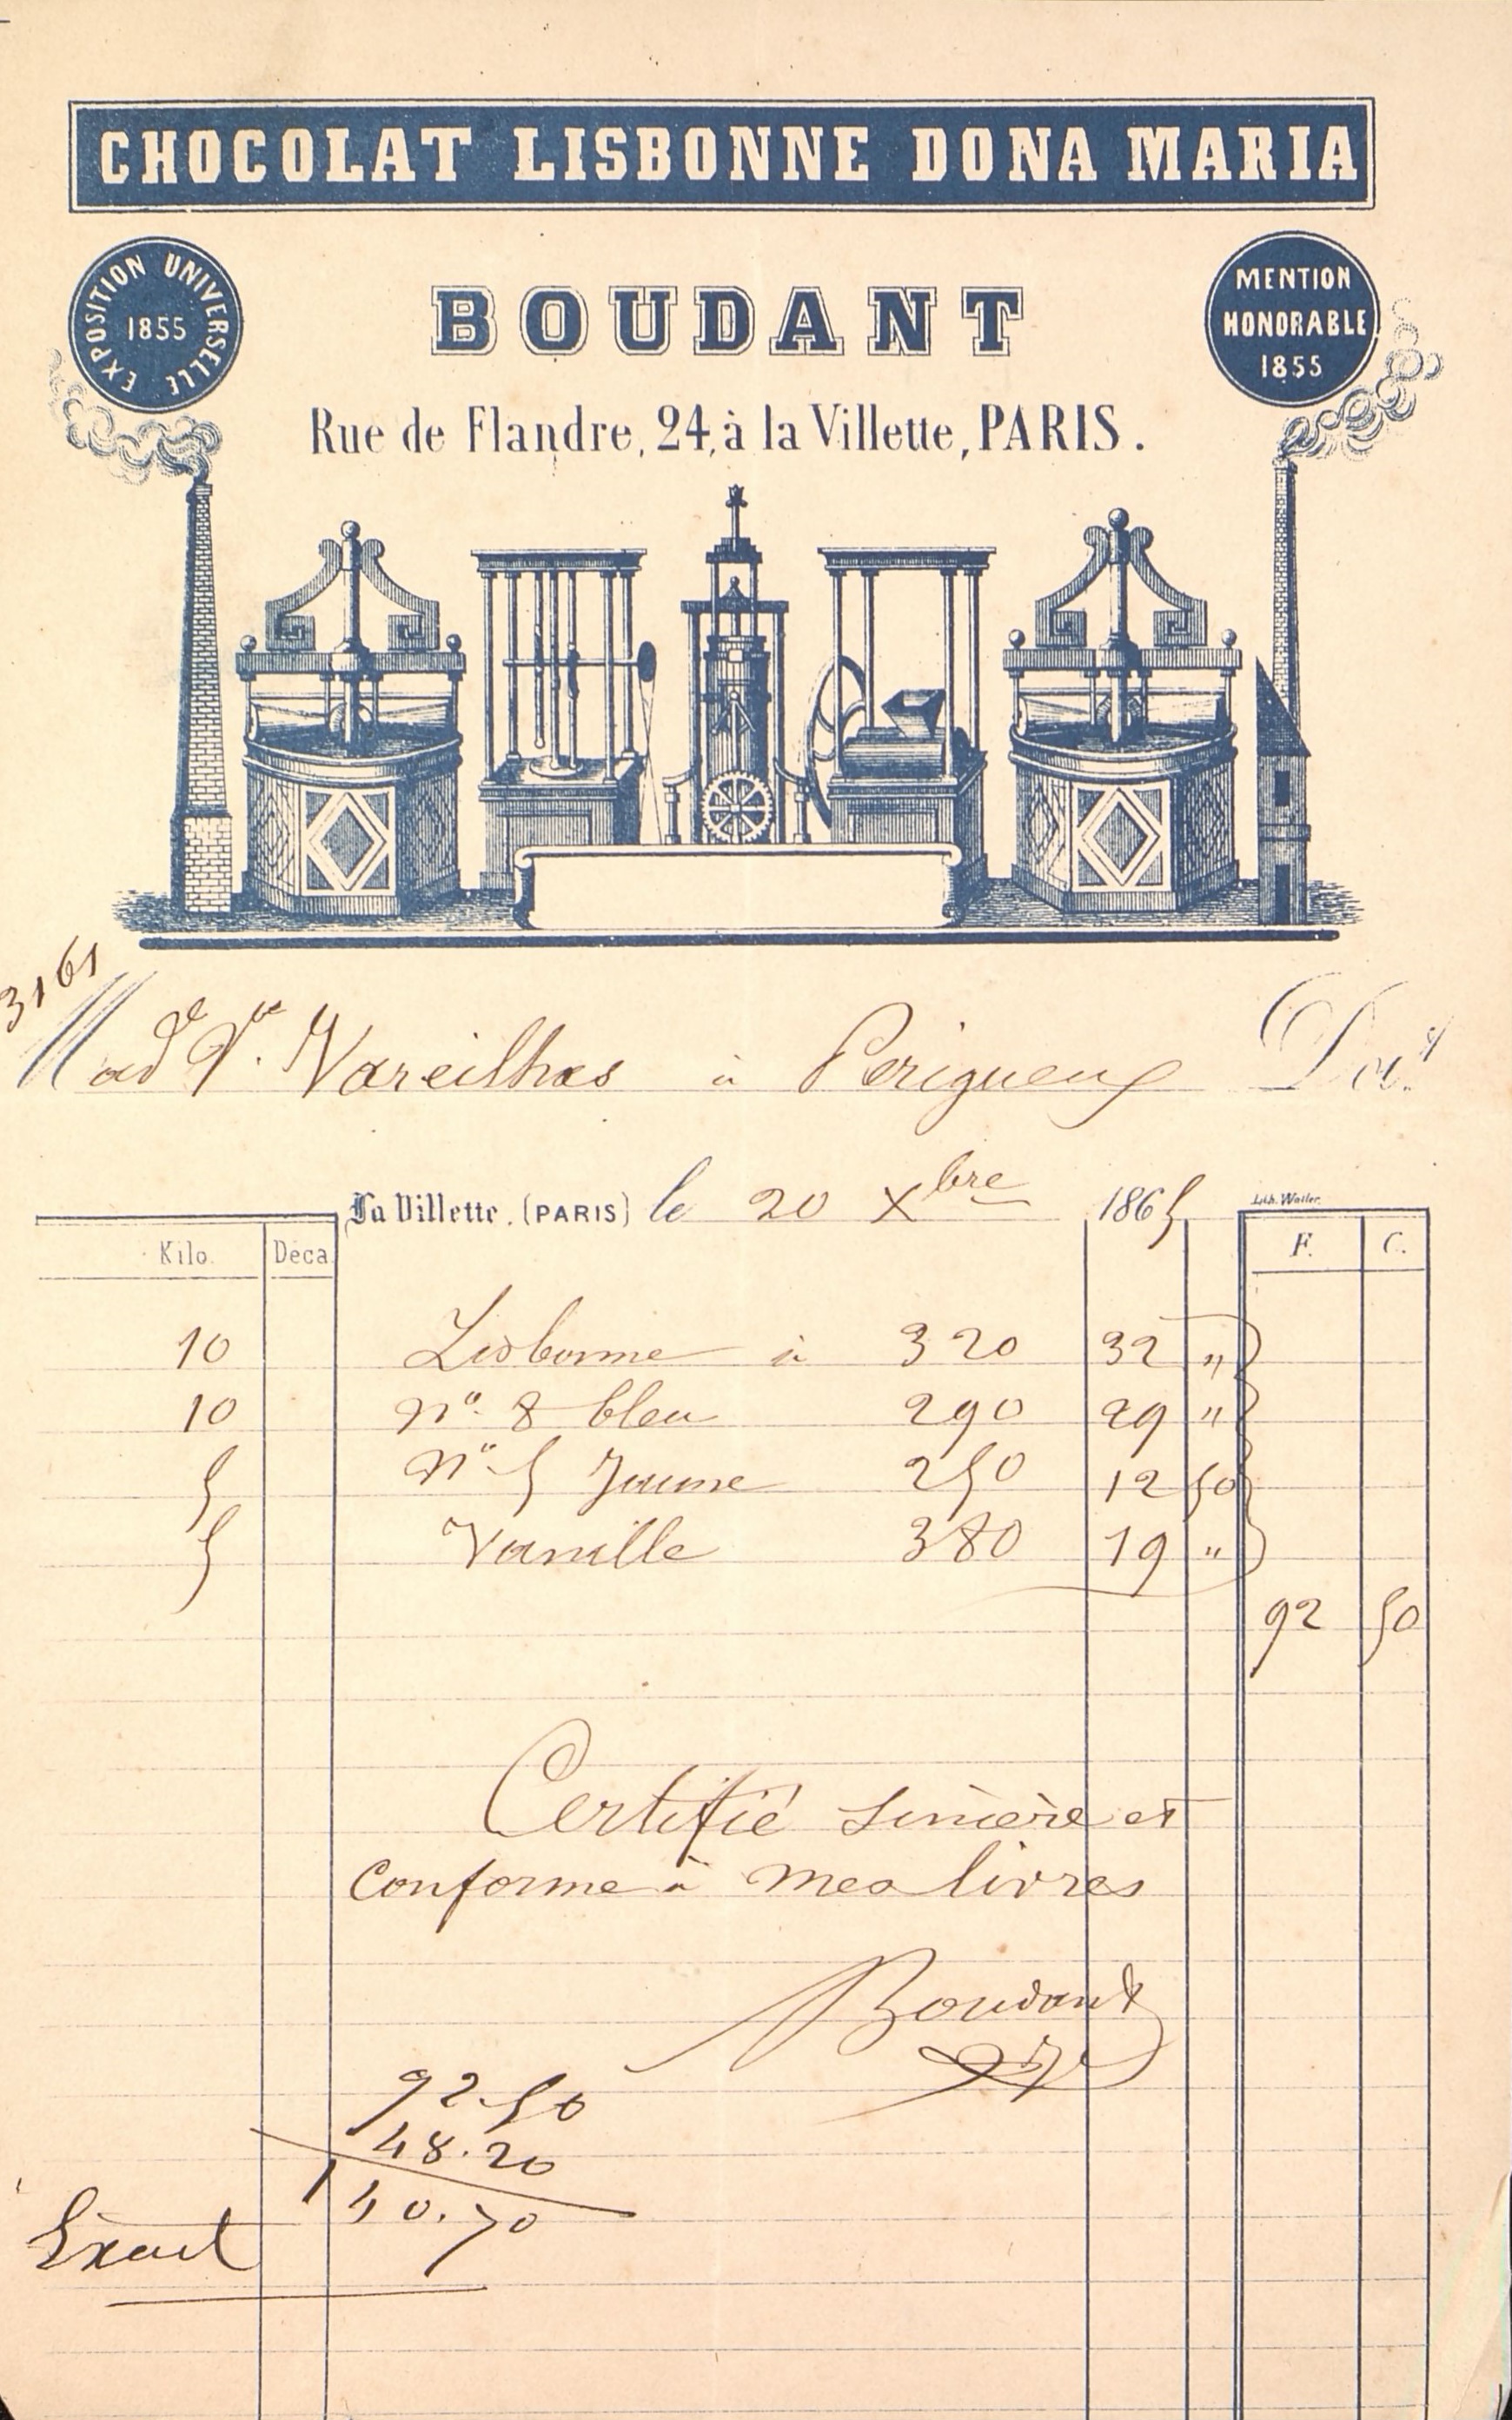 CHOCOLAT LISBONNE DONA MARIA
EXPOSITION UNIVERSELLE
1855
MENTION
HONORABLE
1855
BOUDANT
Rue de Flandre, 24, à la Villette, PARIS.
3161
Mad.e V.ve Vareilhas à Perigueux Doit
La Villette. (PARIS) le 20 Xbre 1865
Lith. Walter.
Kilo. Déca. F. C.
10 Lisbonne à 320 32 "
10 n° 8 bleu 290 29 "
5 n° 5 Jaune 250 12 50
5 Vanille 380 19 "
92 50
Certifié sincère et
conforme à mes livres
Boudant
92.50
48.20
140.70
Exact